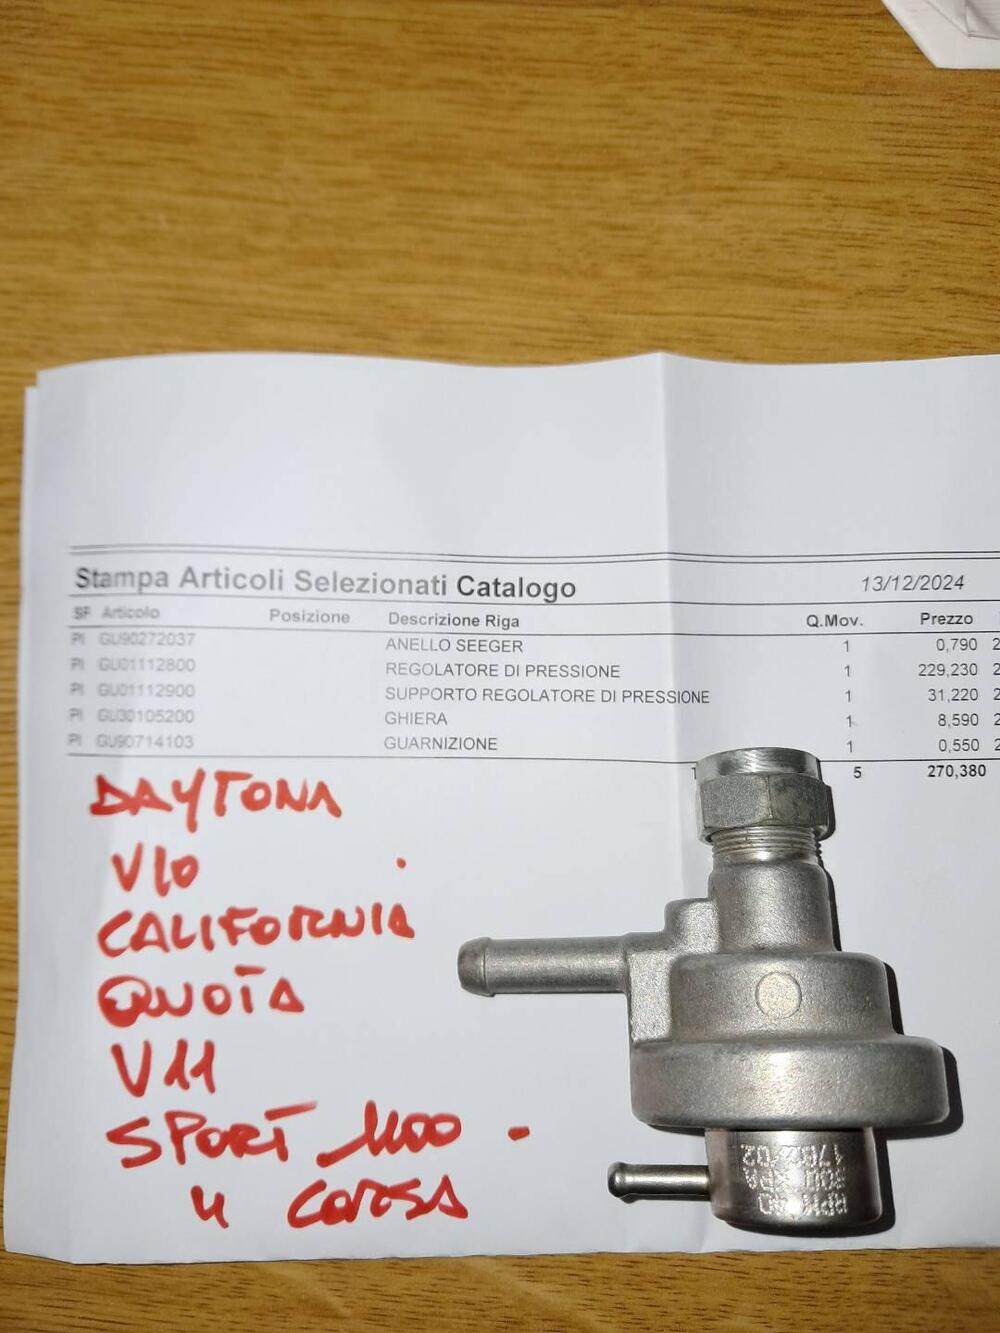 Stampa Articoli Selezionati Catalogo 13/12/2024
SF Articolo Posizione Descrizione Riga Q.Mov. Prezzo
PI GU90272037 ANELLO SEEGER 1 0,790 2
PI GU01112800 REGOLATORE DI PRESSIONE 1 229,230 2
PI GU01112900 SUPPORTO REGOLATORE DI PRESSIONE 1 31,220 2
PI GU30105200 GHIERA 1 8,590 2
PI GU90714103 GUARNIZIONE 1 0,550 2
5 270,380
DAYTONA
V10
CALIFORNIA
QUOTA
V11
SPORT 1100 -
" CORSA